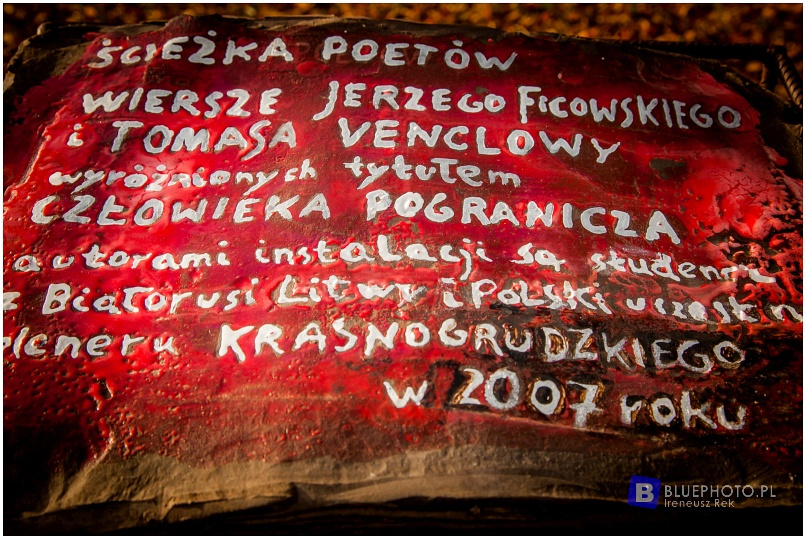 ŚCIEŻKA POETÓW
WIERSZE JERZEGO FICOWSKIEGO
i TOMASA VENCLOWY
wyróżnionych tytułem
CZŁOWIEKA POGRANICZA
autorami instalacji są studenci
z Białorusi Litwy i Polski uczestn
pleneru KRASNOGRUDZKIEGO
w 2007 roku
B BLUEPHOTO.PL
Ireneusz Rek